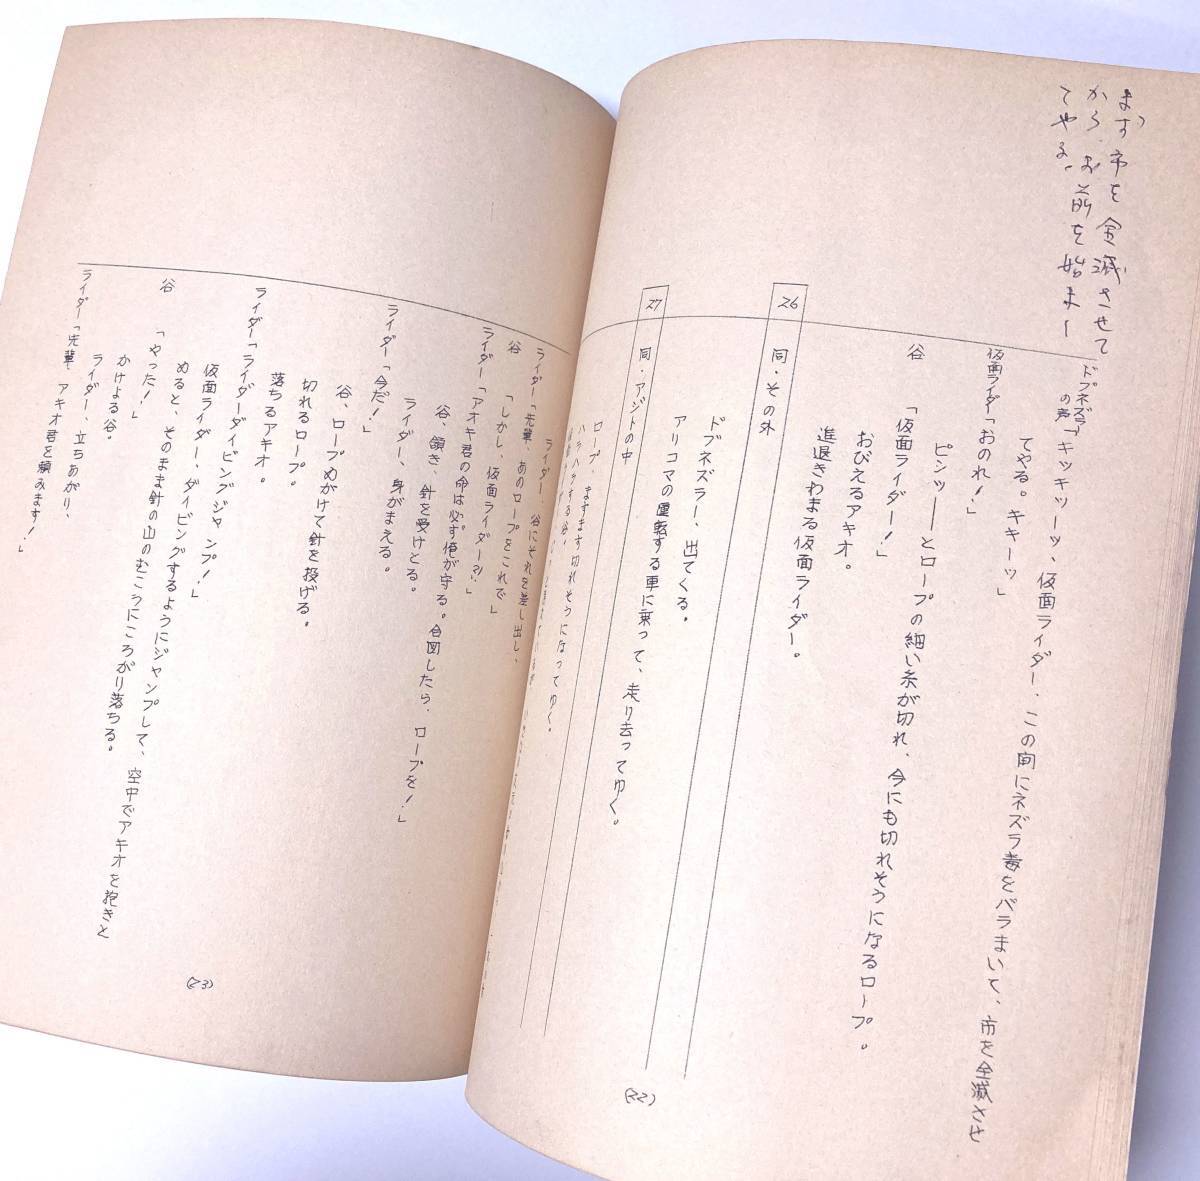 まず市を全滅させて
から、お前を始まー
てやる、
ドブネズラー
の声
「キッキツーッ、仮面ライダー、この間にネズラ毒をバラまいて、市を全滅させ
てやる。キキーッ」
仮面ライダー「おのれ!」
ピンツ――とロープの細い糸が切れ、今にも切れそうになるロープ。
谷 「仮面ライダー!」
おびえるアキオ。
進退きわまる仮面ライダー。
26 同・その外
ドブネズラー、出てくる。
アリコマの運転する車に乗って、走り去ってゆく。
27 同・アジトの中
ロープ、ますます切れそうになってゆく。
ハラハラする谷、
ライダー、谷にそれを差し出し、
ライダー「先輩、あのロープをこれで」
谷 「しかし、仮面ライダー?!」
ライダー「アオキ君の命は必ず俺が守る。合図したら、ロープを!」
谷、頷き、針を受けとる。
ライダー、身がまえる。
ライダー「今だ!」
谷、ロープめがけて針を投げる。
切れるロープ。
落ちるアキオ。
ライダー「ライダーダイビングジャンプ!」
仮面ライダー、ダイビングするようにジャンプして、空中でアキオを抱きと
めると、そのまま針の山のむこうにころがり落ちる。
谷 「やった!」
かけよる谷。
ライダー、立ちあがり、
ライダー「先輩、アキオ君を頼みます!」
(22)
(23)